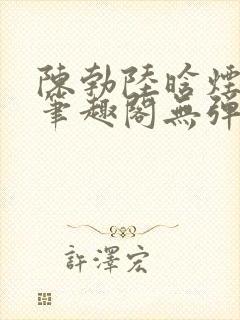 陳勃陸晗煙
筆趣閣無彈
許澤宏